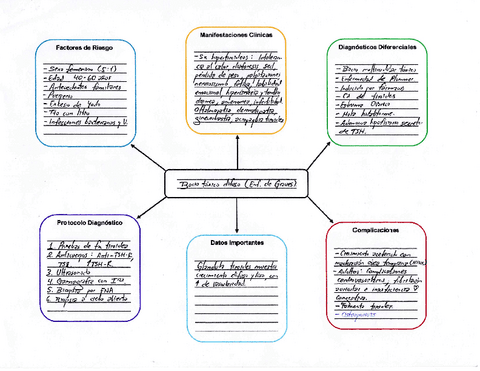 Factores de Riesgo
- Sexo femenino (5:1)
- Edad 40-60 años
- Antecedentes familiares
- Exceso de yodo
- Tto con litio
- Infecciones bacterianas y V.
Manifestaciones Clínicas
- Sx hipertiroideos: intolerancia
al calor, diaforesis, sed,
pérdida de peso, palpitaciones
nerviosismo, fatiga, labilidad
emocional, hiperactividad, temblor
amenorrea, infertilidad
ginecomastia,
Diagnósticos Diferenciales
- Bocio multinodular tóxico
- Enfermedad de Plummer
- Inducido por fármacos
- Ca de tiroides
- Estruma Ovárico
- Mola hidatiforme
- Adenoma hipofisario secretor
de TSH.
Bocio tóxico difuso (Enf. de Graves)
Protocolo Diagnóstico
1. Pruebas de fn tiroidea
2. Anticuerpos: Anti-TSH-R,
TSB, TSH-R.
3. Ultrasonido
4. Gammagrafía con
5. Biopsia por FNA
6.
Datos Importantes
Glándula tiroides muestra
crecimiento difuso y liso, con
↑ de vascularidad
Complicaciones
- Crecimiento acelerado con
maduración ósea temprana
- Adultos: Complicaciones
cardiovasculares, fibrilación
auricular e insuficiencia
congestiva.
- Tormenta tiroidea.
- Osteoporosis